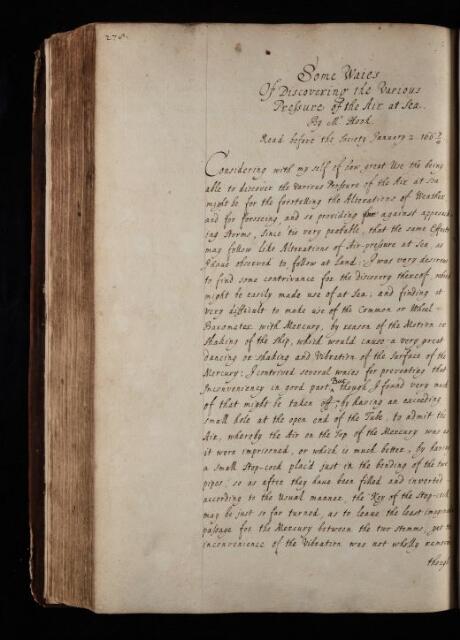 278.
Some Waies
Of Discovering the Various
Pressure of the Air at Sea.
By Mr Hook.
Read before the Society January 2
Considering with my self of how great Use the being
able to discover the Various Pressure of the Air at Sea
might be for the foretelling the Alterations of Weather
and for foreseeing, and so providing against
ing Storms, Since 'tis very probable, that the same Effects
may follow like Alterations of Air-pressure at Sea, as
I have observed to follow at Land: I was very desirous
to find some contrivance for the discovery thereof, which
might be easily made use of at Sea; and finding it
very difficult to make use of the Common or Wheel-
Barometer with Mercury, by reason of the Motion or
shaking of the ship, which would cause a very great
dancing or shaking and Vibration of the Surface of the
Mercury: I contrived several waies for preventing that
Inconveniency in good part, But though I found very much
of that might be taken off, by having an exceeding
small hole at the open end of the Tube, to admit the
Air, whereby the Air on the Top of the Mercury was as
it were imprisoned, or which is much better, by having
a small Stop-cock plac'd just in the bending of the two
pipes; so as after they have been filled and inverted
according to the Usual manner, the Key of the Stop-cock
may be just so far turned, as to leave the least
passage for the Mercury between the two stemms, yet
inconvenience of the Vibration was not wholly